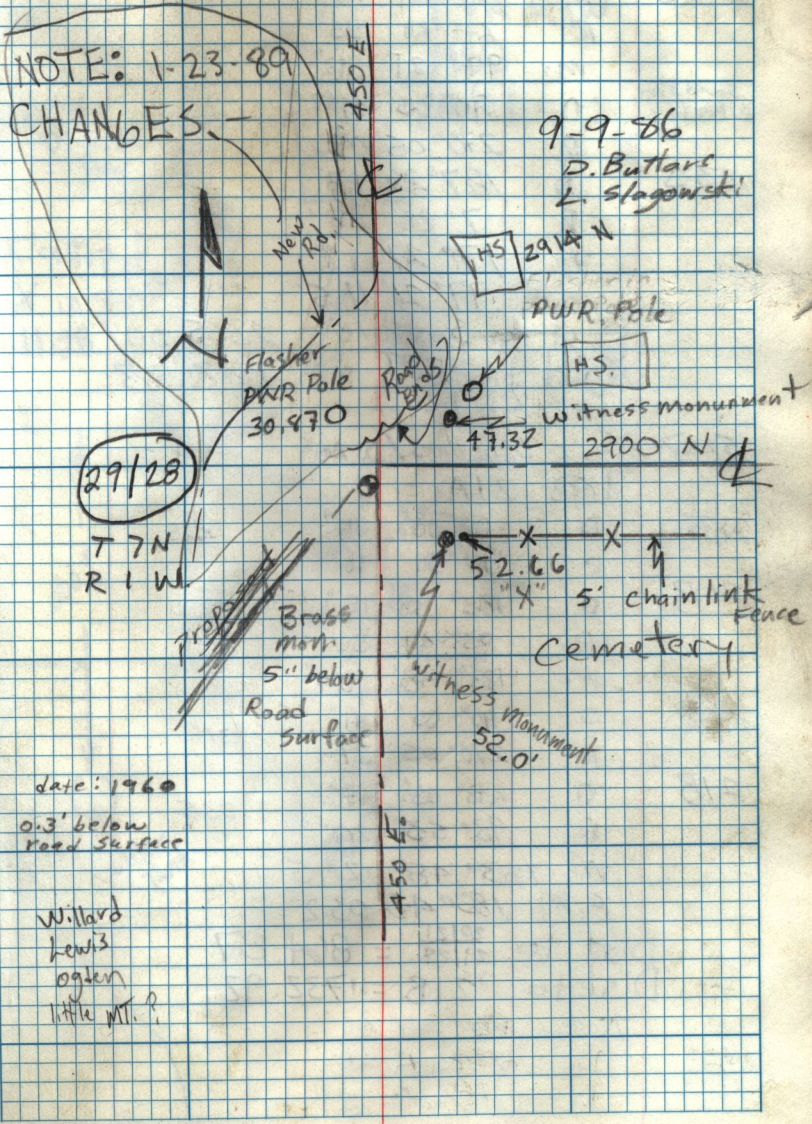 NOTE: 1-23-89
CHANGES.-
450 E
C
L
9-9-86
D. Butlars
L. Slagowski
N
New
Rd.
HS
2914 N
PWR. Pole
HS.
Flasher
PWR Pole
30.87
Road
Ends
Witness monunment
47.32
2900 N
29/28
T 7 N
R 1 W
52.66
"X"
5' chain link
Fence
Cemetery
Proposed
Brass
mon.
5" below
Road
Surface
Witness Monument
52.0'
date: 1960
0.3' below
road surface
450 E.
Willard
Lewis
ogden
little MT. ?